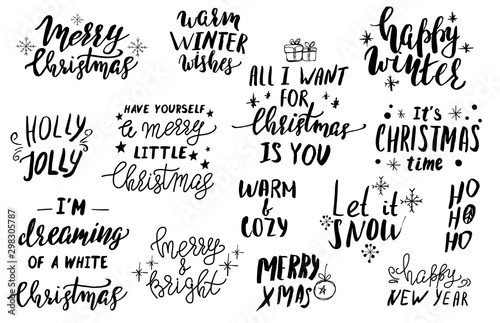 Merry
Christmas
warm
WINTER
wishes
ALL I WANT
FOR
Christmas
IS YOU
happy
winter
HOLLY
JOLLY
HAVE YOURSELF
a merry
LITTLE
Christmas
It's
CHRISTMAS
time
I'M
dreaming
OF A WHITE
Christmas
merry
&
bright
WARM
&
COZY
Let it
SNOW
HO
HO
HO
MERRY
XMAS
happy
NEW YEAR
Adobe Stock | #298305787